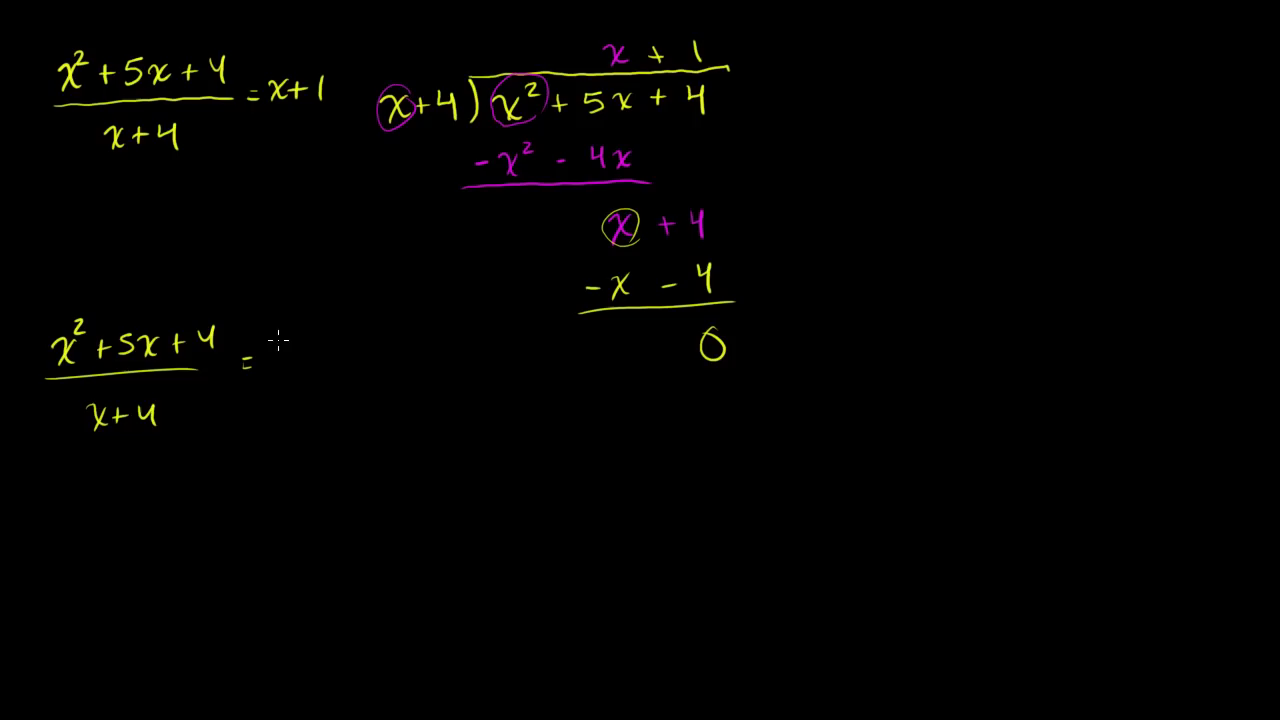 x² + 5x + 4
x + 4
= x + 1
x + 1
x + 4 ) x² + 5x + 4
- x² - 4x
x + 4
- x - 4
0
x² + 5x + 4
x + 4
=